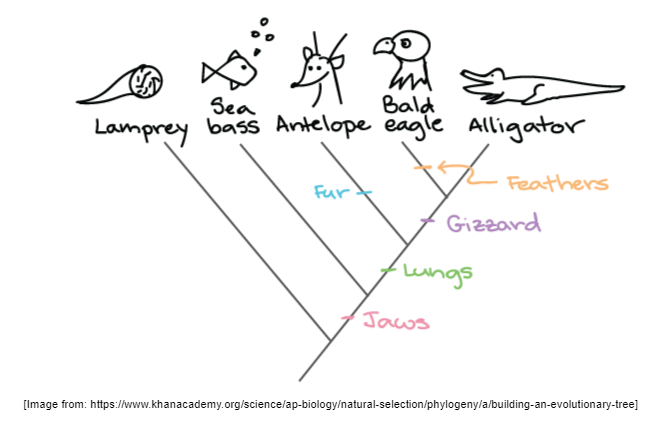 Lamprey
Sea bass
Antelope
Bald eagle
Alligator
Fur
Feathers
Gizzard
Lungs
Jaws
[Image from: https://www.khanacademy.org/science/ap-biology/natural-selection/phylogeny/a/building-an-evolutionary-tree]